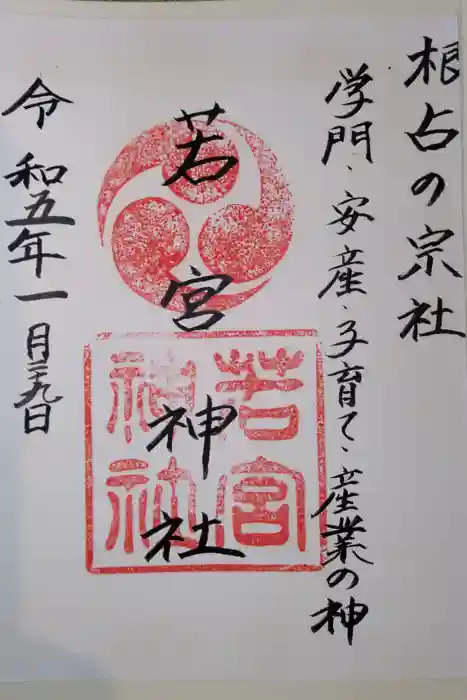 根占の宗社
学門、安産、子育て、産業の神
若宮神社
若宮
神社
令和五年一月二九日